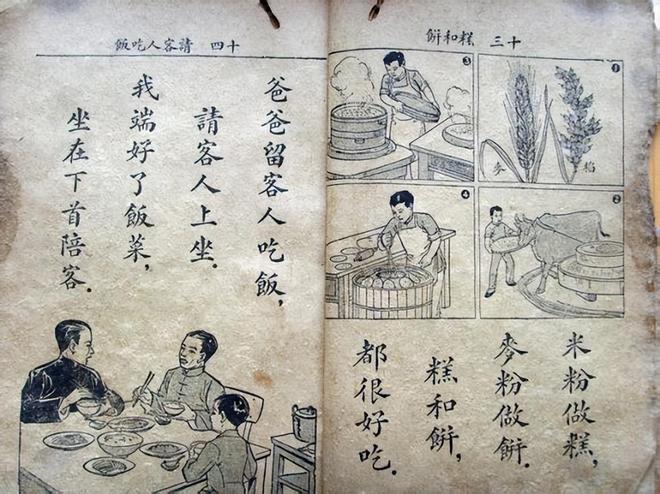 十三 糕和餅
1
稻
麥
2
3
4
米粉做糕,
麥粉做餅.
糕和餅,
都很好吃.
十四 請客人吃飯
爸爸留客人吃飯,
請客人上坐.
我端好了飯菜,
坐在下首陪客.